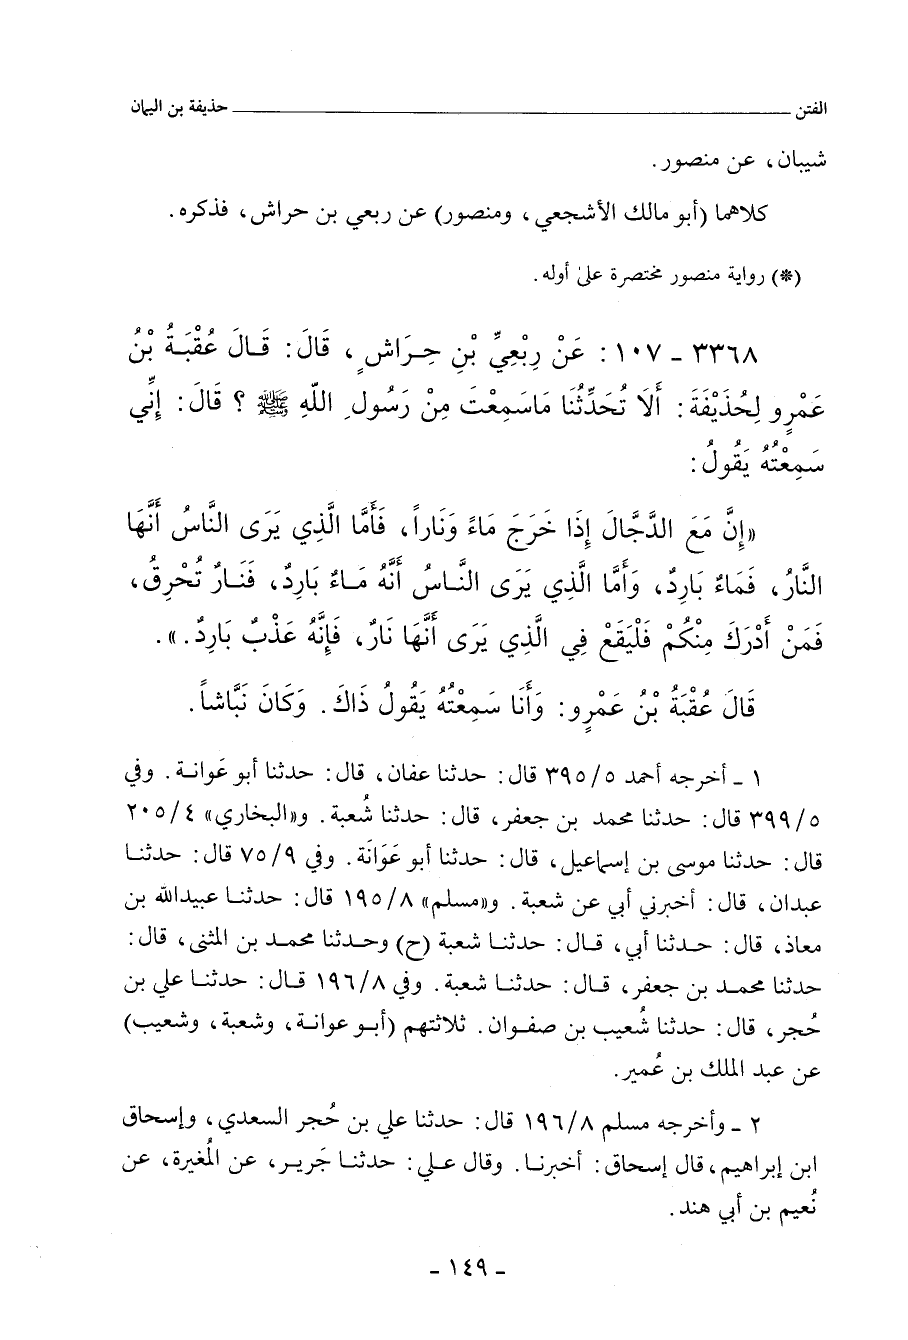 الفتن ـــــــــــــــــــــــــــــــــــــــــــــــــــــــــــــــــ حذيفة بن اليمان
شيبان، عن منصور.
كلاهما (أبو مالك الأشجعي، ومنصور) عن ربعي بن حراش، فذكره.
(*) رواية منصور مختصرة على أوله.
٣٣٦٨ - ١٠٧: عَنْ رِبْعِيِّ بْنِ حِرَاشٍ، قَالَ: قَالَ عُقْبَةُ بْنُ
عَمْرٍو لِحُذَيْفَةَ: أَلَا تُحَدِّثُنَا مَاسَمِعْتَ مِنْ رَسُولِ اللّهِ ﷺ ؟ قَالَ: إِنِّي
سَمِعْتُهُ يَقُولُ:
«إِنَّ مَعَ الدَّجَّالِ إِذَا خَرَجَ مَاءً وَنَاراً، فَأَمَّا الَّذِي يَرَى النَّاسُ أَنَّهَا
النَّارُ، فَمَاءٌ بَارِدٌ، وَأَمَّا الَّذِي يَرَى النَّاسُ أَنَّهُ مَاءٌ بَارِدٌ، فَنَارٌ تُحْرِقُ،
فَمَنْ أَدْرَكَ مِنْكُمْ فَلْيَقَعْ فِي الَّذِي يَرَى أَنَّهَا نَارٌ، فَإِنَّهُ عَذْبٌ بَارِدٌ.».
قَالَ عُقْبَةُ بْنُ عَمْرٍو: وَأَنَا سَمِعْتُهُ يَقُولُ ذَاكَ. وَكَانَ نَبَّاشاً.
١ - أخرجه أحمد ٣٩٥/٥ قال: حدثنا عفان، قال: حدثنا أبو عَوانة. وفي
٣٩٩/٥ قال: حدثنا محمد بن جعفر، قال: حدثنا شُعبة. و«البخاري» ٢٠٥/٤
قال: حدثنا موسى بن إسماعيل، قال: حدثنا أبو عَوَانَة. وفي ٧٥/٩ قال: حدثنا
عبدان، قال: أخبرني أبي عن شعبة. و«مسلم» ١٩٥/٨ قال: حدثنا عبيدالله بن
معاذ، قال: حدثنا أبي، قال: حدثنا شعبة (ح) وحدثنا محمد بن المثنى، قال:
حدثنا محمد بن جعفر، قال: حدثنا شعبة. وفي ١٩٦/٨ قال: حدثنا علي بن
حُجر، قال: حدثنا شُعيب بن صفوان. ثلاثتهم (أبو عوانة، وشعبة، وشعيب)
عن عبد الملك بن عُمير.
٢ - وأخرجه مسلم ١٩٦/٨ قال: حدثنا علي بن حُجر السعدي، وإسحاق
ابن إبراهيم، قال إسحاق: أخبرنا. وقال علي: حدثنا جَرير، عن المُغيرة، عن
نُعيم بن أبي هند.
- ١٤٩ -